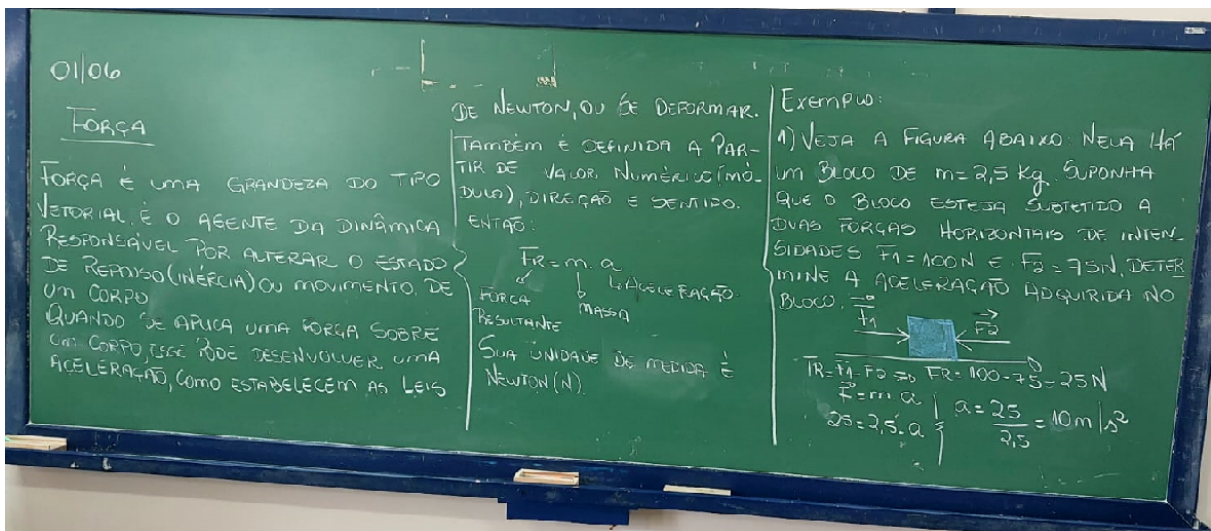 01/06
FORÇA
FORÇA É UMA GRANDEZA DO TIPO
VETORIAL. É O AGENTE DA DINÂMICA
RESPONSÁVEL POR ALTERAR O ESTADO
DE REPOUSO (INÉRCIA) OU MOVIMENTO DE
UM CORPO
QUANDO SE APLICA UMA FORÇA SOBRE
UM CORPO, ESSE PODE DESENVOLVER UMA
ACELERAÇÃO, COMO ESTABELECEM AS LEIS
DE NEWTON, OU SE DEFORMAR.
TAMBÉM É DEFINIDA A PAR-
TIR DE VALOR NUMÉRICO (MÓ-
DULO), DIREÇÃO E SENTIDO.
ENTÃO:
FR = m. a
ACELERAÇÃO.
FORÇA
MASSA
RESULTANTE
SUA UNIDADE DE MEDIDA É
NEWTON (N).
EXEMPLO:
1) VEJA A FIGURA ABAIXO: NELA HÁ
UM BLOCO DE m = 2,5 Kg. SUPONHA
QUE O BLOCO ESTEJA SUBTETIDO A
DUAS FORÇAS HORIZONTAIS DE INTEN-
SIDADES F1 = 100N E F2 = 75N. DETER
MINE A ACELERAÇÃO ADQUIRIDA NO
BLOCO.
F1 F2
FR = F1 - F2 => FR = 100 - 75 = 25N
F = m a
25 = 2,5. a
a = 25/2,5 = 10 m/s²